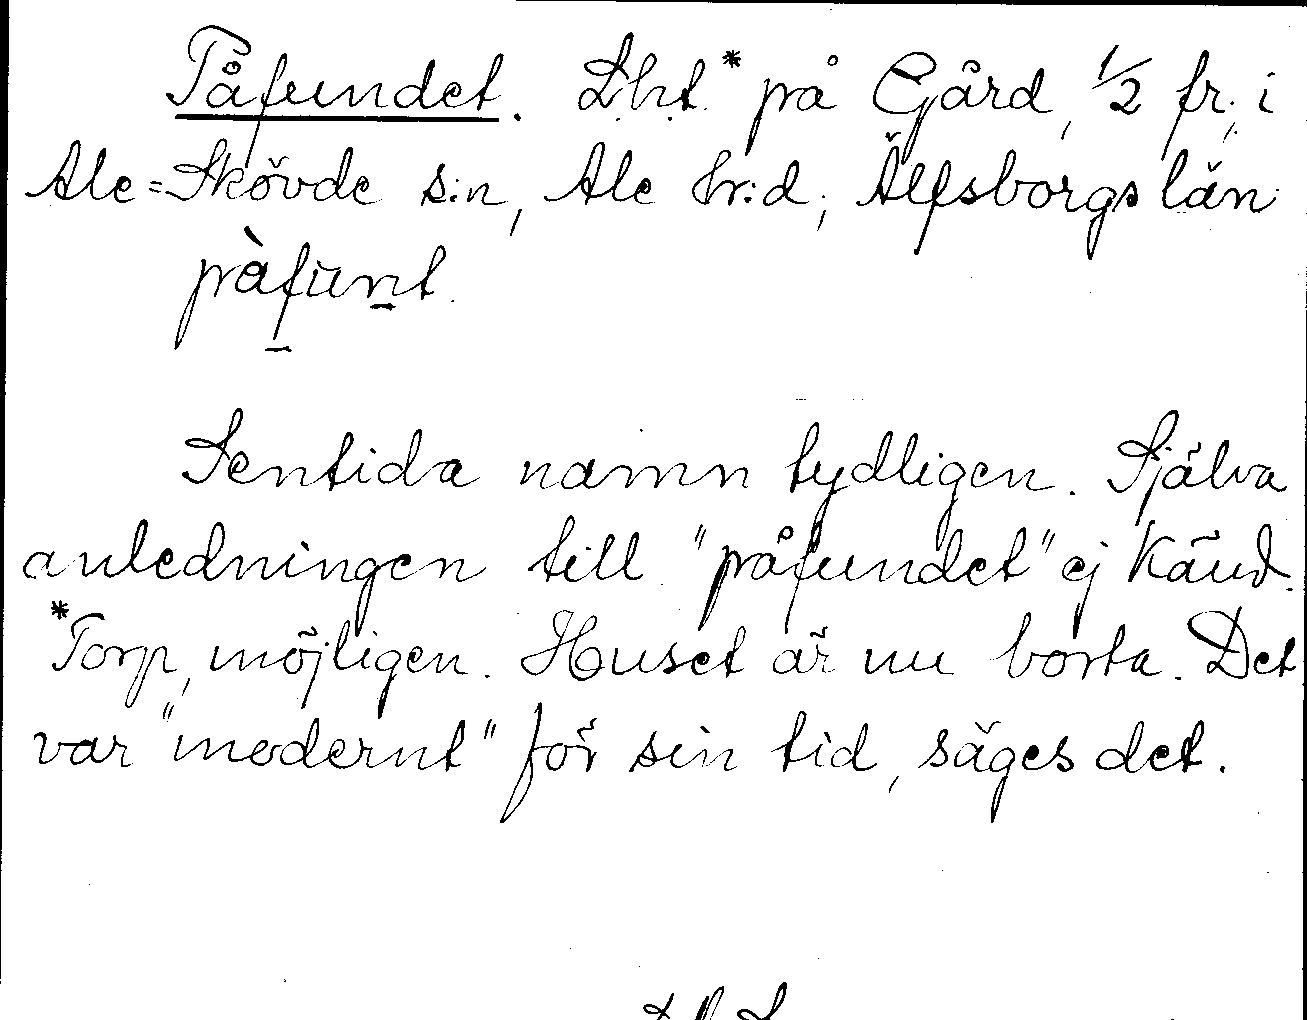 Påfundet. Lht.* på Gård, 1/2 fr., i
Ale=Skövde s:n, Ale hr:d, Älfsborgs län
pàfunt.
Sentida namn tydligen. Själva
anledningen till "påfundet" ej känd.
*Torp, möjligen. Huset är nu borta. Det
var "modernt" för sin tid, säges det.